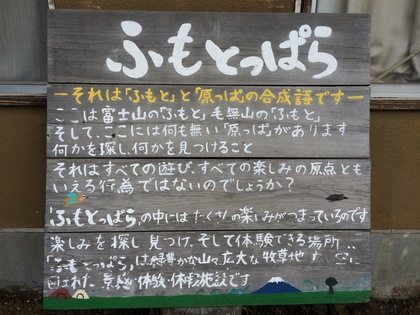 ふもとっぱら
ーそれは「ふもと」と「原っぱ」の合成語ですー
ここは富士山の「ふもと」毛無山の「ふもと」
そして、ここには何も無い「原っぱ」があります
何かを探し、何かを見つけること
それはすべての遊び、すべての楽しみの原点とも
いえる行為ではないのでしょうか?
「ふもとっぱら」の中にはたくさんの楽しみがつまっているのです
楽しみを探し見つけ、そして体験できる場所…
「ふもとっぱら」は緑豊かな山々、広大な牧草地
まれた 景感・体験・休暇施設です